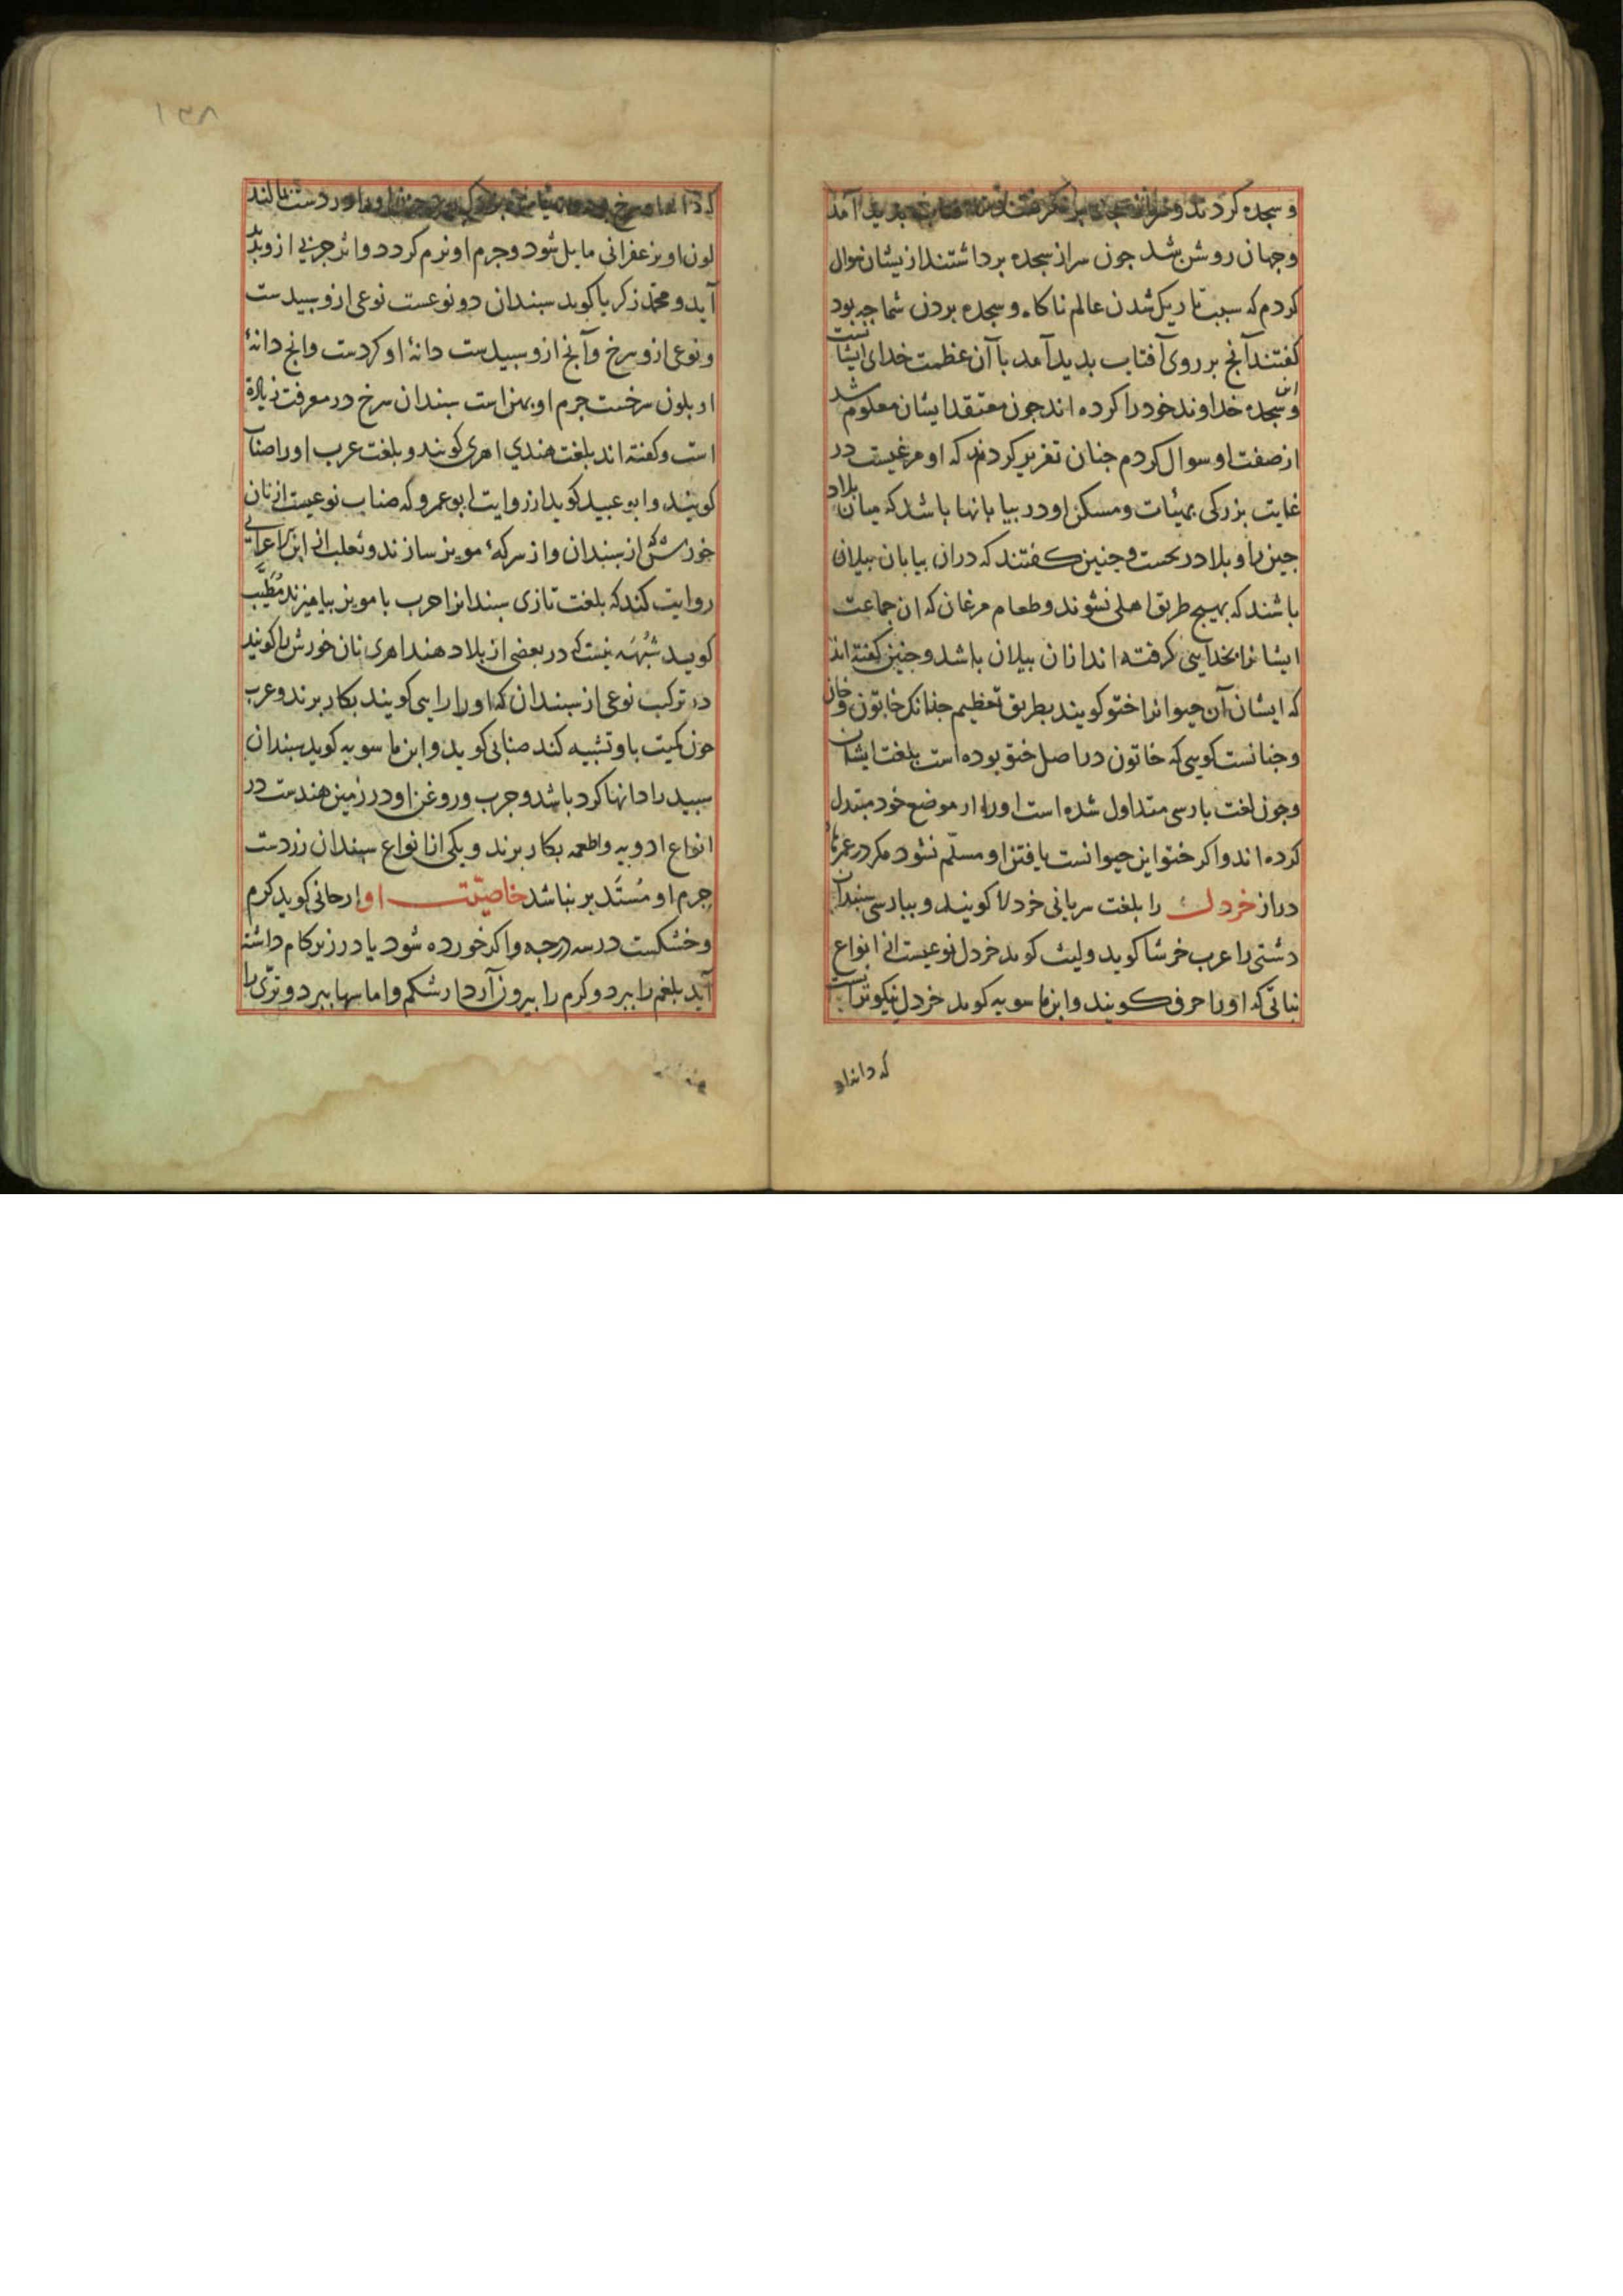 و سجده کردند و بدید آمد
و جهان روشن شد جون سر از سجده برداشتند از یشان سوال
کردم که سبب تاریک شدن عالم ناکاه و سجده بردن شما جه بود
کفتند آنج بر روی آفتاب بدید آمد با آن عظمت خدای ایشانست
و این سجده خداوند خود را کرده اند جون معتقد ایشان معلوم شد
از صفت او سوال کردم جنان تقریر کردند که او مرغیست در
غایت بزرکی بهیئات و مسکن او در بیابانها باشد که میان بلاد
جین و بلاد و جنین کفتند که دران بیابان بیلان
باشند که بهیج طریق اهلی نشوند و طعام مرغان که ان جماعت
ایشانرا بخدایی کرفته اند ازان بیلان باشد و جنین کفته اند
که ایشان آن حیوانرا ختو کویند بطریق تعظیم جنانک خاتون و خان
و جنانست کویی که خاتون در اصل ختو بوده است بلغت ایشان
و جون لغت بارسی متداول شده است اورا از موضع خود مبتدل
کرده اند و اکر ختو این حیوانست یافتن او مسلّم نشود مکر در عمرهاء
دراز خردل را بلغت سریانی خردلا کویند و ببارسی سبندان
دشتی را عرب خرشا کوید و لیث کوید خردل نوعیست از انواع
نباتی که اورا حرف کویند و ابن ماسویه کوید خردل نیکوتر آنست
که دانهاء
۱۳۸
که دانهاء سرخ در دست مالند
لون او بزعفرانی مایل شود و جرم او نرم کردد و اثر جربی ازو بدید
آید و محمّد زکریا کوید سبندان دو نوعست نوعی ازو سبیدست
و نوعی ازو سرخ و آنج ازو سبیدست دانهٔ او کردست و انج دانهٔ
او بلون سرخست جرم او بهن است سبندان سرخ در معرفت زیادة
است و کفته اند بلغت هندی اهری کویند و بلغت عرب اورا صناب
کویند و ابو عبید کوید از روایت ابو عمرو که صناب نوعیست از نان
خورش کش از سبندان و از سرکهٔ مویز سازند و ثعلب از ابن اعرابی
روایت کند که بلغت تازی سبندانرا عرب با مویز بیامیزند مُطَیَّب
کویند شُبْهَه نیست که در بعضی از بلاد هند اهری نان خورش را کویند
در ترکیب نوعی از سبندان که اورا رایی کویند بکار برند و عرب
جون کمیت باو تشبیه کند صنابی کوید و ابن ماسویه کوید سبندان
سبید را دانها کرد باشد و جرب و روغن او در زمین هندست در
انواع ادویه و اطعمه بکار برند و یکی از انواع سبندان زردست
جرم او مُستَدیر نباشد خاصیّت او ارجانی کوید کرم
و خشکست در سه درجه و اکر خورده شود یا در زیر کام داشته
آید بلغم را ببرد و کرم را بیرون آرد از شکم و اماسها ببرد و ترّی را